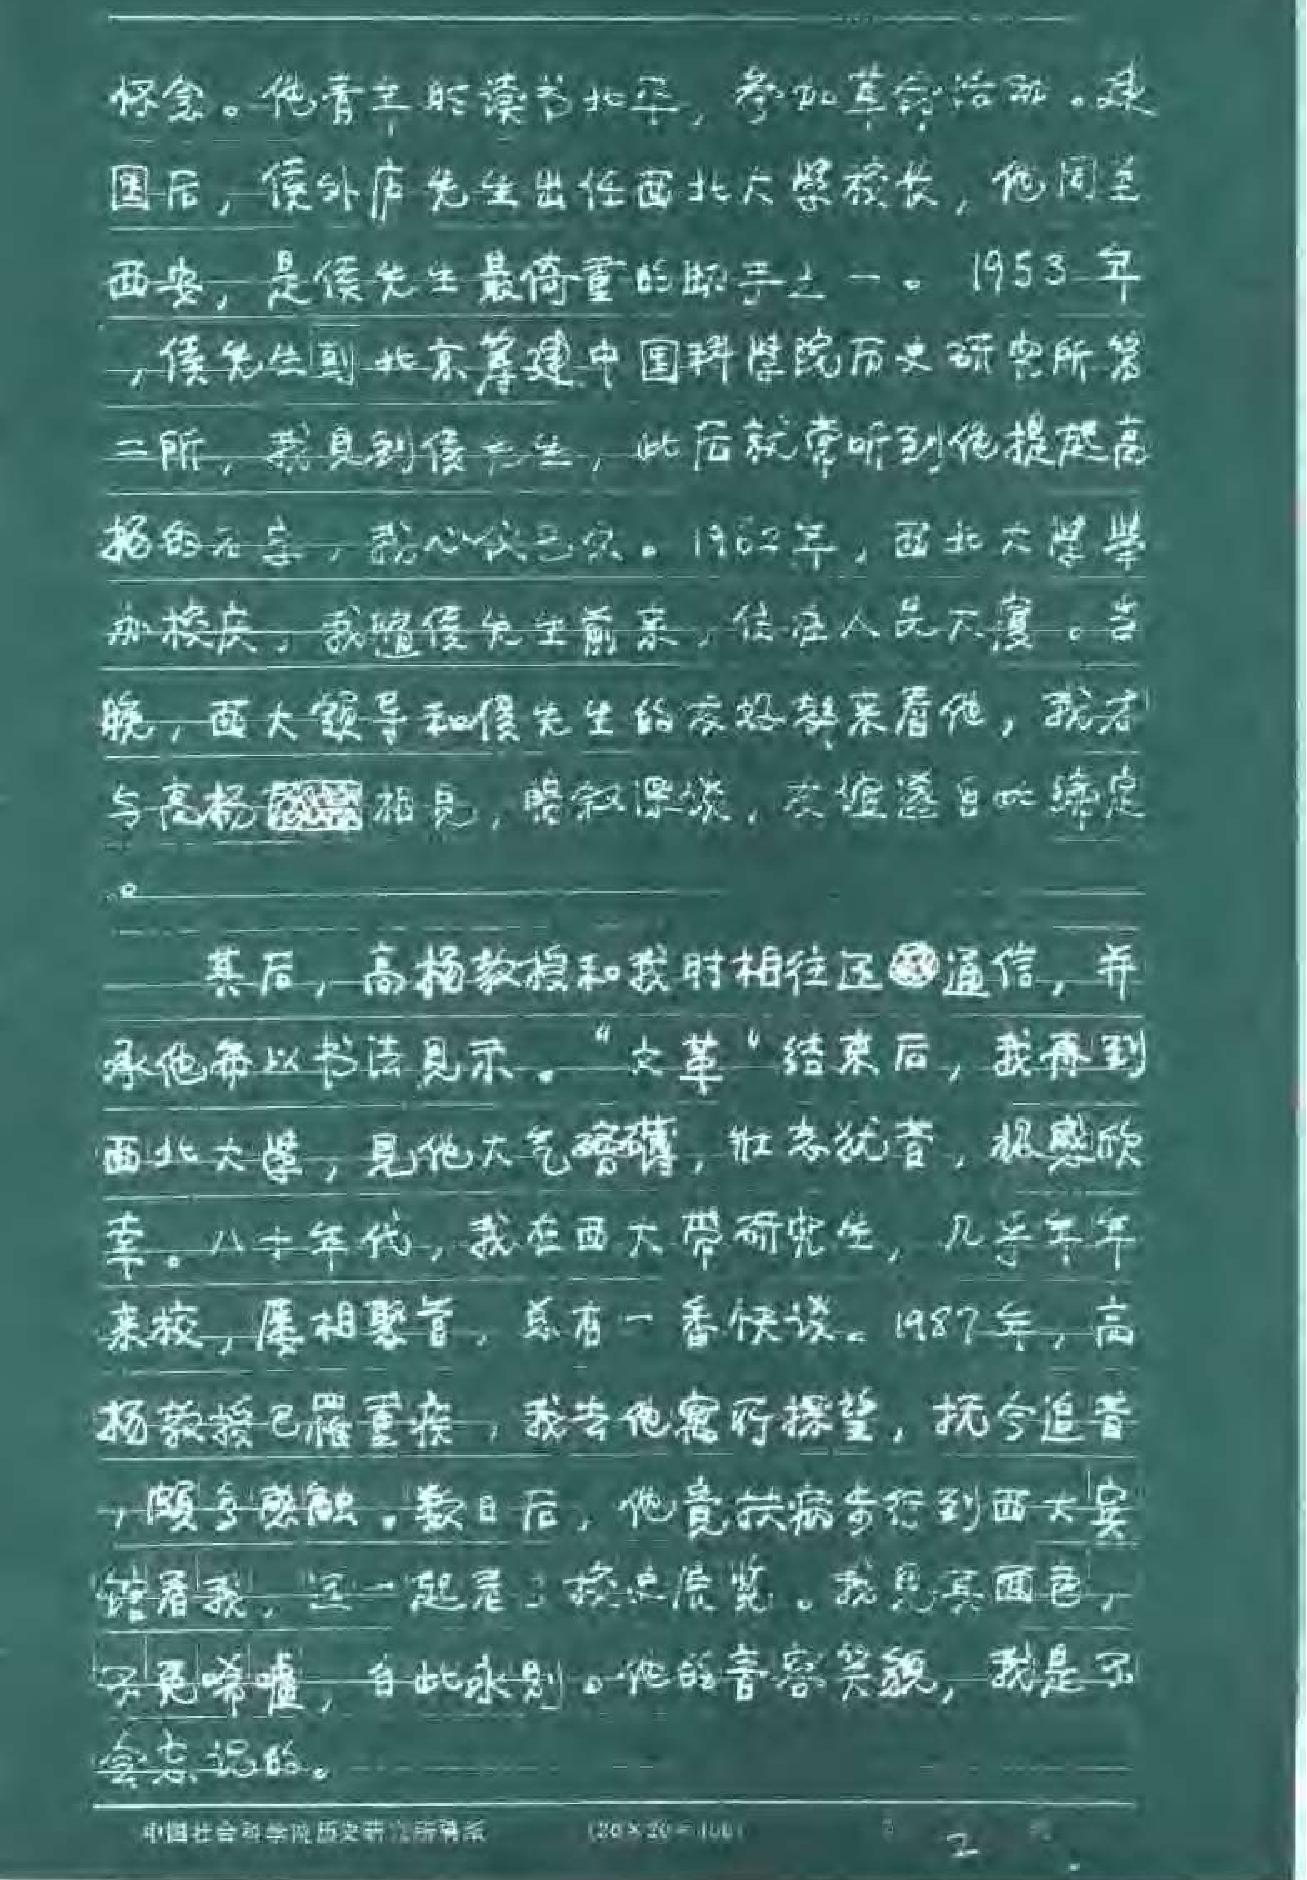 怀念。他青年时读书北平，参加革命活动。建
国后，侯外庐先生出任西北大學校长，他同至
西安，是侯先生最倚重的助手之一。1953年
，侯先生到北京筹建中国科學院历史研究所第
二所，我见到侯先生，此后就常听到他提起高
扬的名字，我心仪已久。1962年，西北大學舉
办校庆，我随侯先生前来，住在人民大厦。当
晚，西大领导和侯先生的友好都来看他，我才
与高扬相见，暢叙深谈，友谊遂自此缔定
。
其后，高扬教授和我时相往还通信，并
承他每以书法见示。“文革”结束后，我再到
西北大學，见他大气磅礴，壮志犹昔，极感欣
幸。八十年代，我在西大帶研究生，几乎年年
来校，屡相聚首，总有一番快谈。1987年，高
扬教授已罹重疾，我去他寓所探望，抚今追昔
，颇多感触。数日后，他竟扶病步行到西大宾
馆看我，还一起看了校史展览。我见其面色，
不免唏嘘，自此永别。他的音容笑貌，我是不
会忘记的。
中国社会科学院历史研究所稿纸 (20×20=400)
2